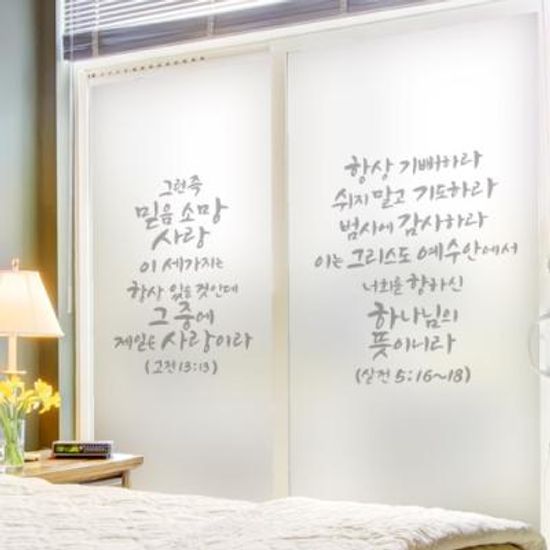 그런즉
믿음 소망
사랑
이 세가지는
항상 있을 것인데
그 중에
제일은 사랑이라
(고전 13:13)
항상 기뻐하라
쉬지 말고 기도하라
범사에 감사하라
이는 그리스도 예수안에서
너희를 향하신
하나님의
뜻이니라
(살전 5:16~18)